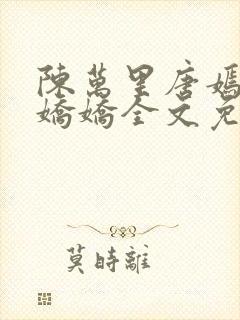 陳萬里唐嫣
嬌嬌全文免
莫時離